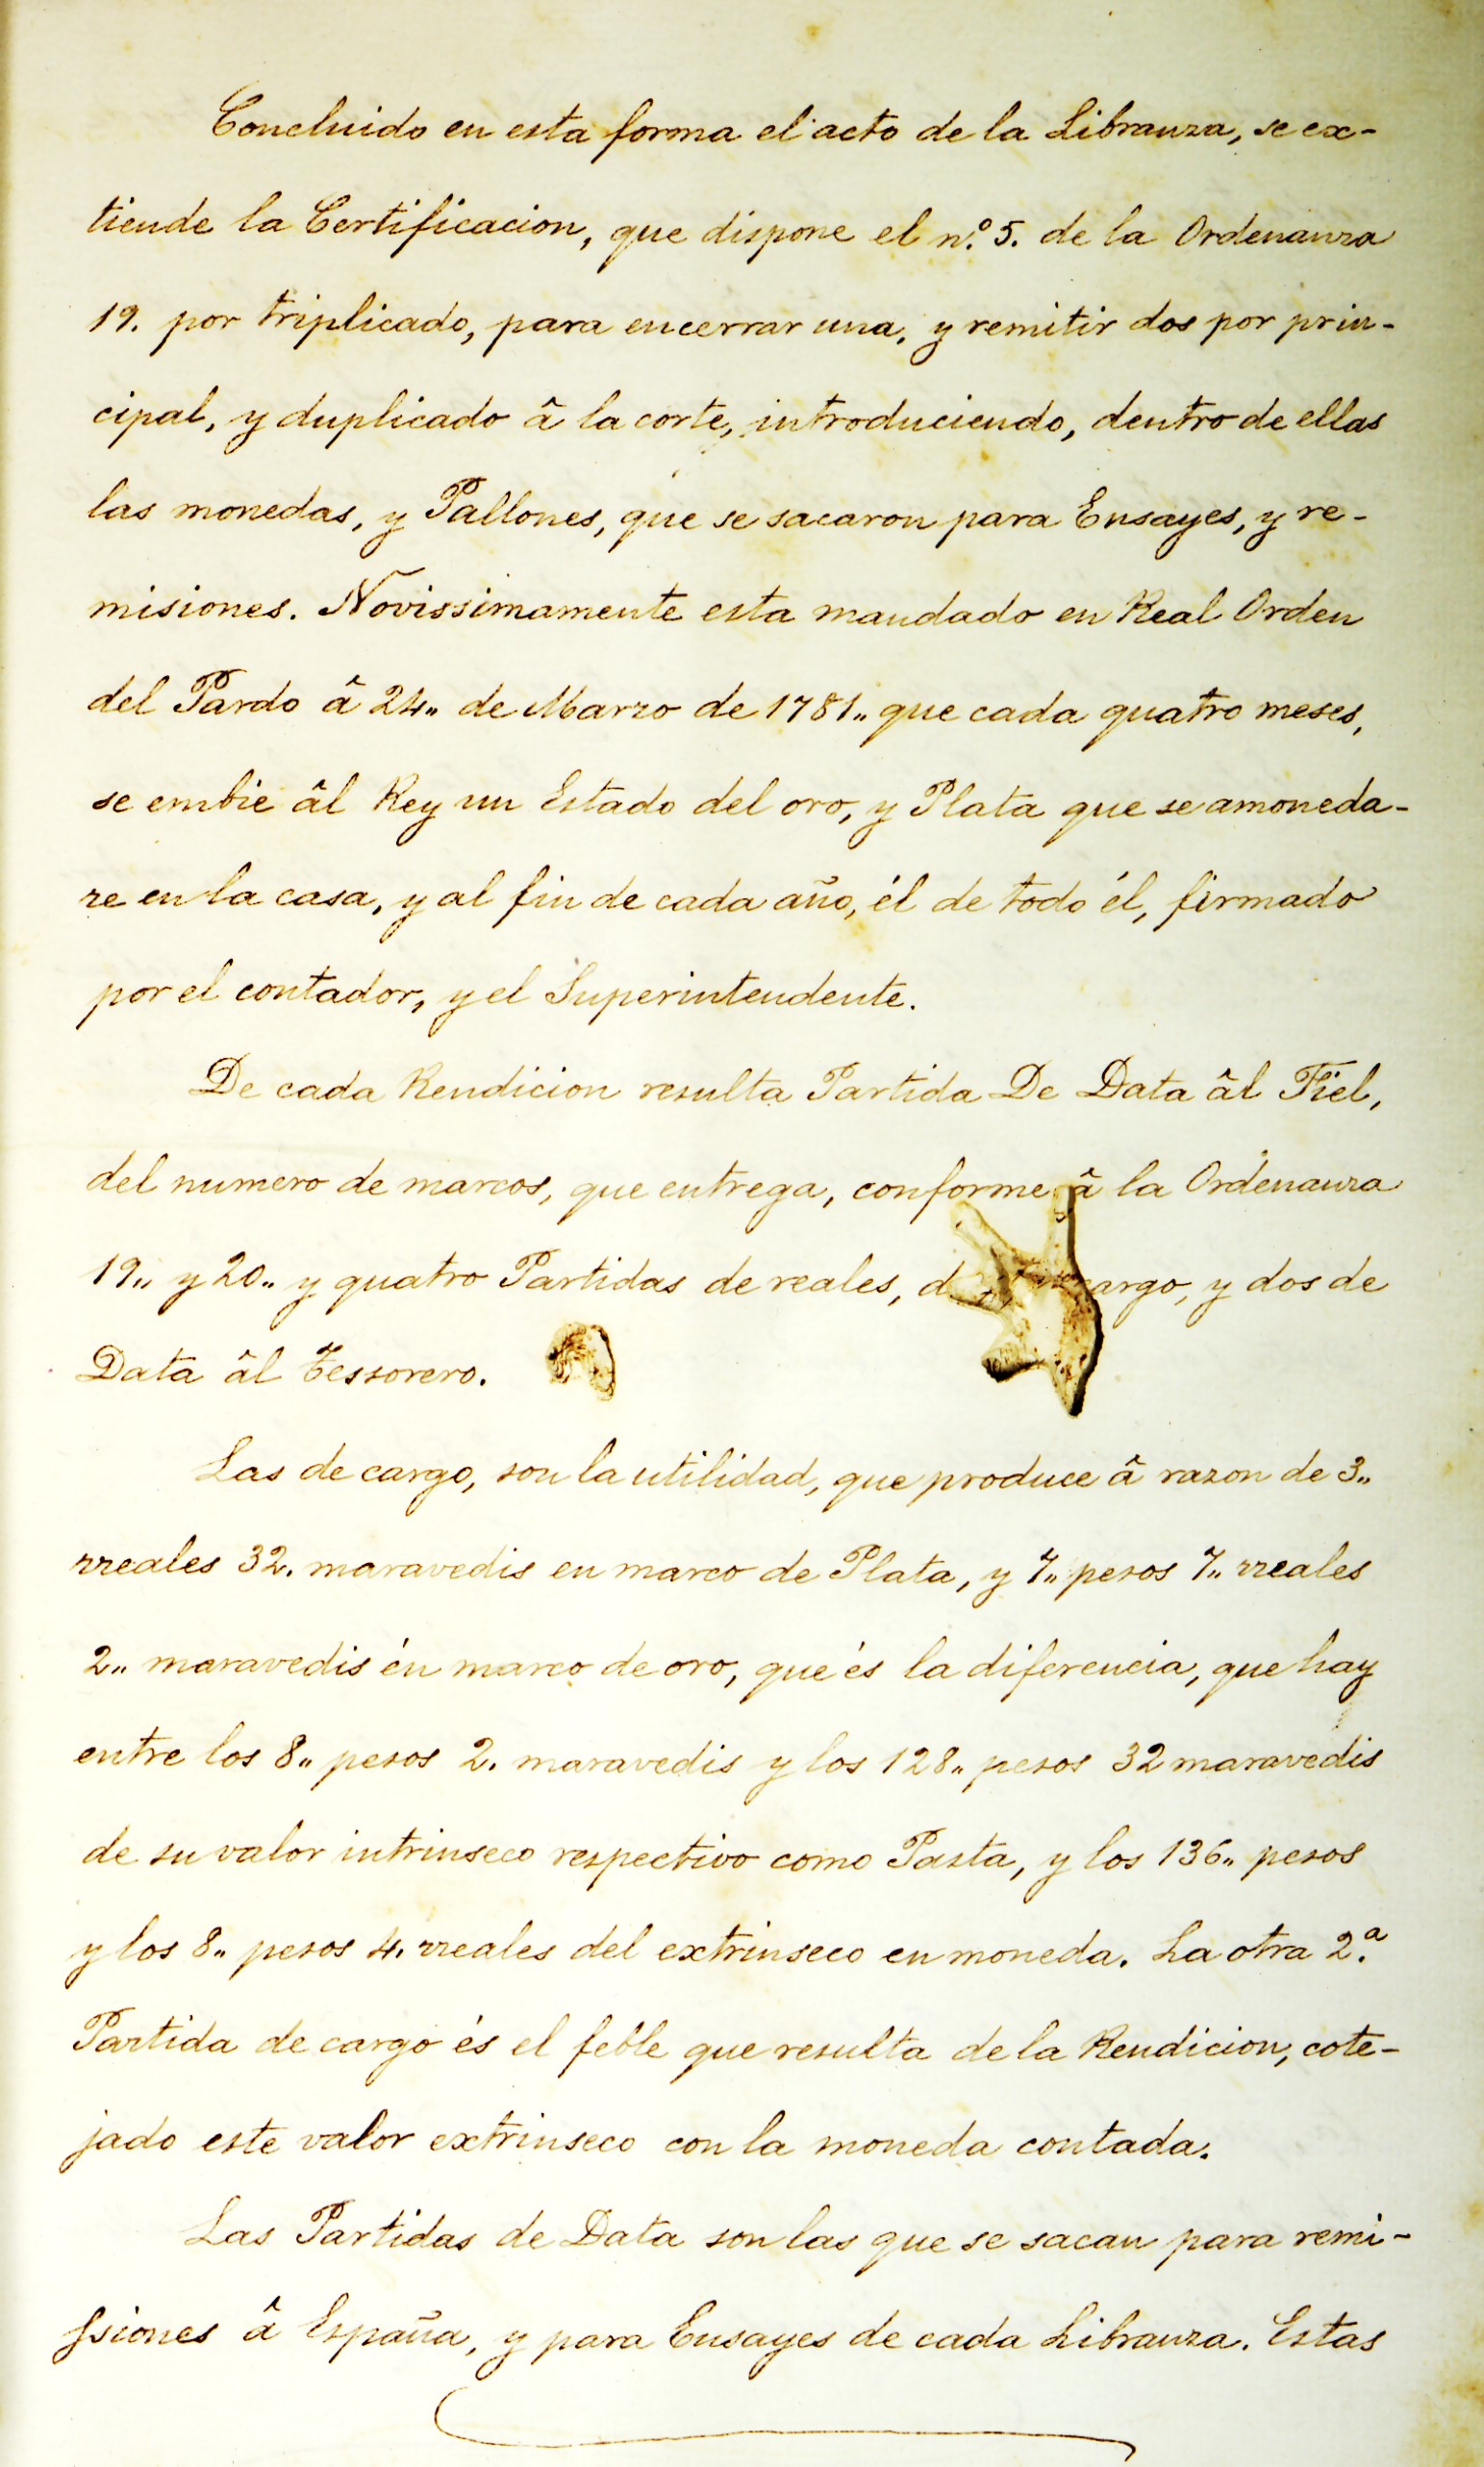 Concluido en esta forma el acto de la Libranza, se ex-
tiende la Certificacion, que dispone el n.º 5. de la Ordenanza
19. por triplicado, para encerrar una, y remitir dos por prin-
cipal, y duplicado â la corte, introduciendo, dentro de ellas
las monedas, y Pallones, que se sacaron para Ensayes, y re-
misiones. Novissimamente esta mandado en Real Orden
del Pardo â 24„ de Marzo de 1781„ que cada quatro meses,
se embie âl Rey un Estado del oro, y Plata que se amoneda-
re en la casa, y al fin de cada año, él de todo él, firmado
por el contador, y el Superintendente.
De cada Rendicion resulta Partida De Data âl Fiel,
del numero de marcos, que entrega, conforme â la Ordenanza
19„ y 20„ y quatro Partidas de reales, cargo, y dos de
Data âl Tessorero.
Las de cargo, son la utilidad, que produce â razon de 3„
rreales 32. maravedis en marco de Plata, y 7„ pesos 7„ rreales
2„ maravedis én marco de oro, que és la diferencia, que hay
entre los 8„ pesos 2. maravedis y los 128„ pesos 32 maravedis
de su valor intrinseco respectivo como Pasta, y los 136„ pesos
y los 8„ pesos 4. rreales del extrinseco en moneda. La otra 2.ª
Partida de cargo és el feble que resulta de la Rendicion, cote-
jado este valor extrinseco con la moneda contada.
Las Partidas de Data son las que se sacan para remi-
ssiones â España, y para Ensayes de cada Libranza. Estas